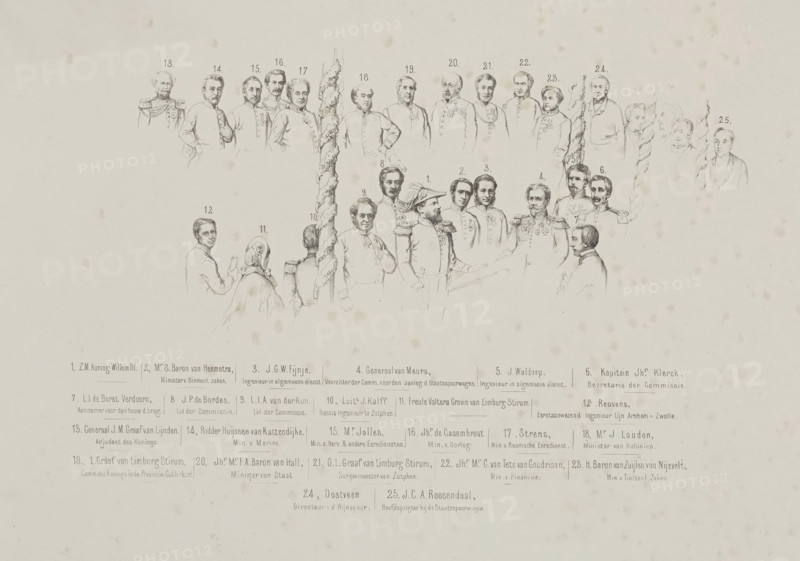 13. 14. 15. 16. 17 18 19. 20. 21. 22. 23. 24. 25.
8. 1. 2. 3. 4. 5. 6. 7
12. 11. 10. 9.
1. Z.M. Koning Willem III. 2. Mr. S. Baron van Heemstra, 3. J.G.W. Fijnje. 4. Generaal van Meurs, 5 J. Waldorp. 6. Kapitein Jhr. Klerck.
Ministerv. Binnenl. zaken. Ingenieur in algemeene dienst. Voorzitter der Comm. voor den aanleg d. Staatsspoorwegen. Ingenieur in algemeene dienst. Secretaris der Commissie.
7. I.J. de Borst Verdoorn, 8 J.P. de Bordes. 9. L.J.A. van der Kun. 10. Luitt. J. Kalff 11. Freule Voltera Graven van Limburg Stirum. 12. Reuvens,
Aannemer van den bouw d. brug. Lid der Commissie. Lid der Commissie. Ingenieur te Zutphen. Eerstaanwezend Ingenieur lijn Arnhem - Zwolle.
13. Generaal J.M. Graaf van Lijnden. 14. Ridder Huijssen van Kattendijke. 15. Mr. Jolles. 16. Jhr. de Casembroot. 17. Strens, 18. Mr. J. Loudon,
Adjudant des Konings. Min. v. Marine. Min. v. Herv. & andere Eerediensten. Min. v. Oorlog. Min. v. Roomsche Eeredienst. Minister van Koloniën.
19. I. Graaf van Limburg Stirum, 20. Jhr. Mr. F.A. Baron van Hall, 21. O.L. Graaf van Limburg Stirum, 22. Jhr. Mr. G. van Tets van Goudriaan, 23. H. Baron van Zuijlen van Nijevelt,
Comm. des Konings in de Provincie Gelderland. Minister van Staat. Burgemeester van Zutphen. Min. v. Financiën. Min. v. Buitenl. Zaken.
24, Oostveen 25. J.C.A. Roosendaal,
Directeur i. d. Rijnspoor. Hoofdopzigter bij de Staatsspoorwegen.
PHOTO12